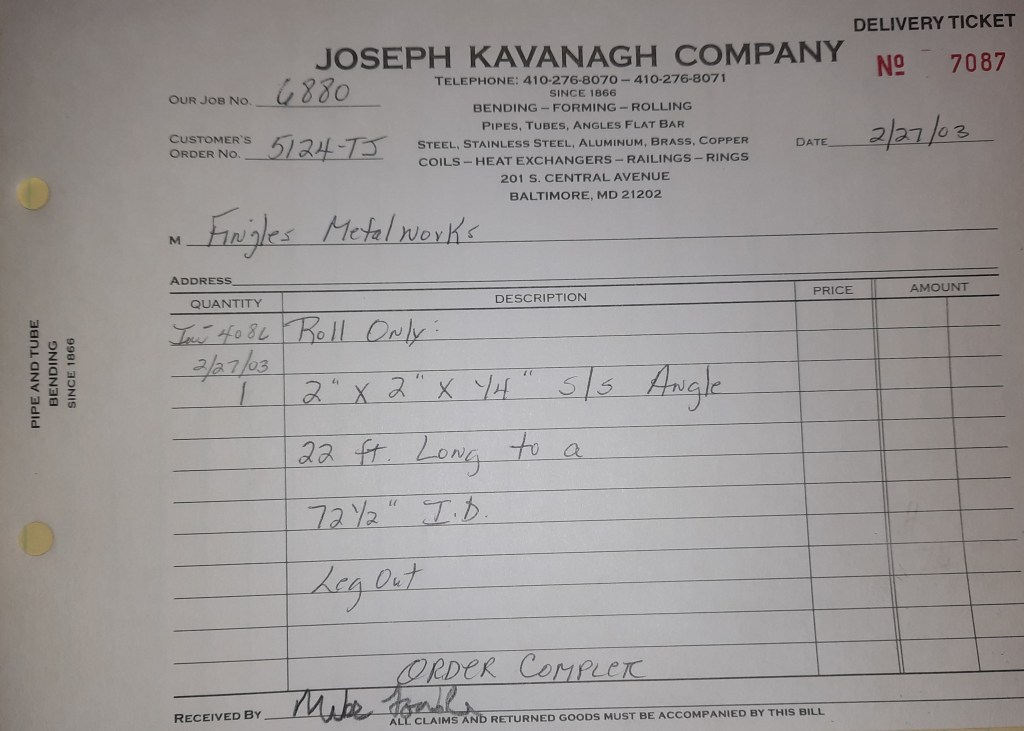 DELIVERY TICKET
JOSEPH KAVANAGH COMPANY
Nº 7087
TELEPHONE: 410-276-8070 – 410-276-8071
SINCE 1866
OUR JOB NO. 6880
BENDING – FORMING – ROLLING
PIPES, TUBES, ANGLES FLAT BAR
CUSTOMER'S
ORDER NO. 5124-TJ
STEEL, STAINLESS STEEL, ALUMINUM, BRASS, COPPER
DATE 2/27/03
COILS – HEAT EXCHANGERS – RAILINGS – RINGS
201 S. CENTRAL AVENUE
BALTIMORE, MD 21202
M Fingles Metalworks
ADDRESS
QUANTITY DESCRIPTION PRICE AMOUNT
Roll Only:
2/27/03
1 2" X 2" X 1/4" S/S Angle
22 ft. Long to a
72 1/2" I.D.
Leg Out
ORDER COMPLETE
RECEIVED BY Mike
ALL CLAIMS AND RETURNED GOODS MUST BE ACCOMPANIED BY THIS BILL
PIPE AND TUBE
BENDING
SINCE 1866